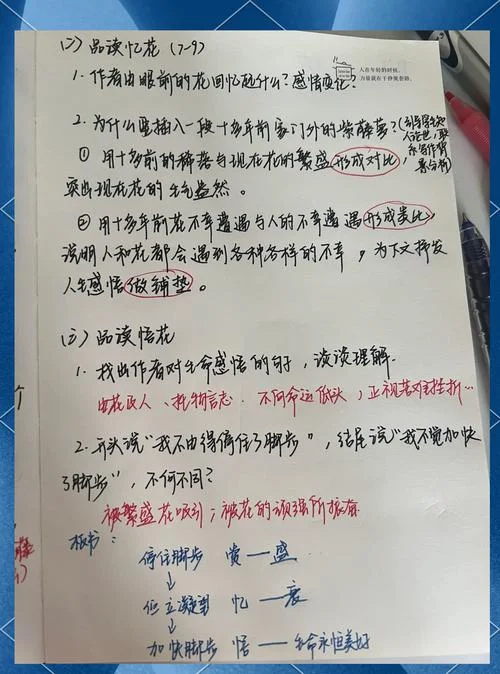 (二) 品读忆花 (7-9)
人在年轻的时候,
力量就在于挣脱套路.
1. 作者由眼前的花回忆起什么?感情变化?
2. 为什么要插入一段十多年前家门外的紫藤萝?(引导学生知
人论世,联
系写作背
景分析)
① 用十多年前的稀落与现在花的繁盛形成对比,
突出现在花的生气盎然。
② 用十多年前花不幸遭遇与人的不幸遭遇形成类比,
说明人和花都会遇到各种各样的不幸,为下文抒发
人生感悟做铺垫。
(三) 品读悟花
1. 找出作者对生命感悟的句子,谈谈理解.
由花及人、托物言志. 不向命运低头,正视苦难挫折…
2. 开头说“我不由得停住了脚步”,结尾说“我不觉加快
了脚步”,有何不同?
被繁盛花吸引;被花的顽强所
板书:
停住脚步 赏——盛
↓
伫立凝望 忆——衰
↓
加快脚步 悟——生命永恒美好